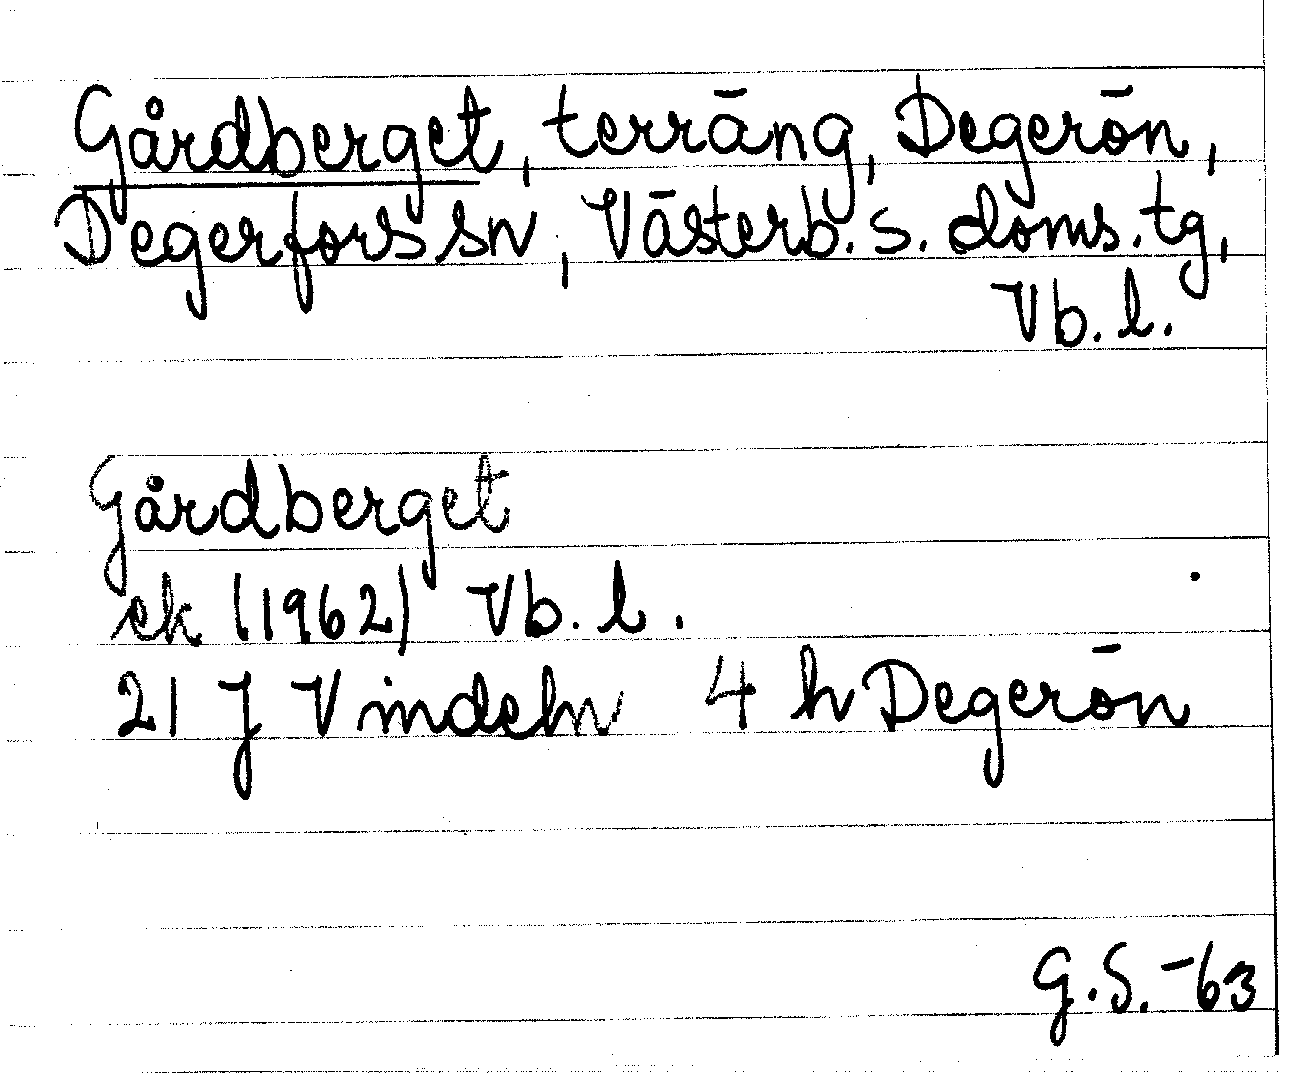 Gårdberget, terräng, Degerön,
Degerfors sn, Västerb. s. doms. tg,
Vb. l.
Gårdberget
ek (1962) Vb. l.
21 J Vindeln 4 h Degerön
G.S. -63